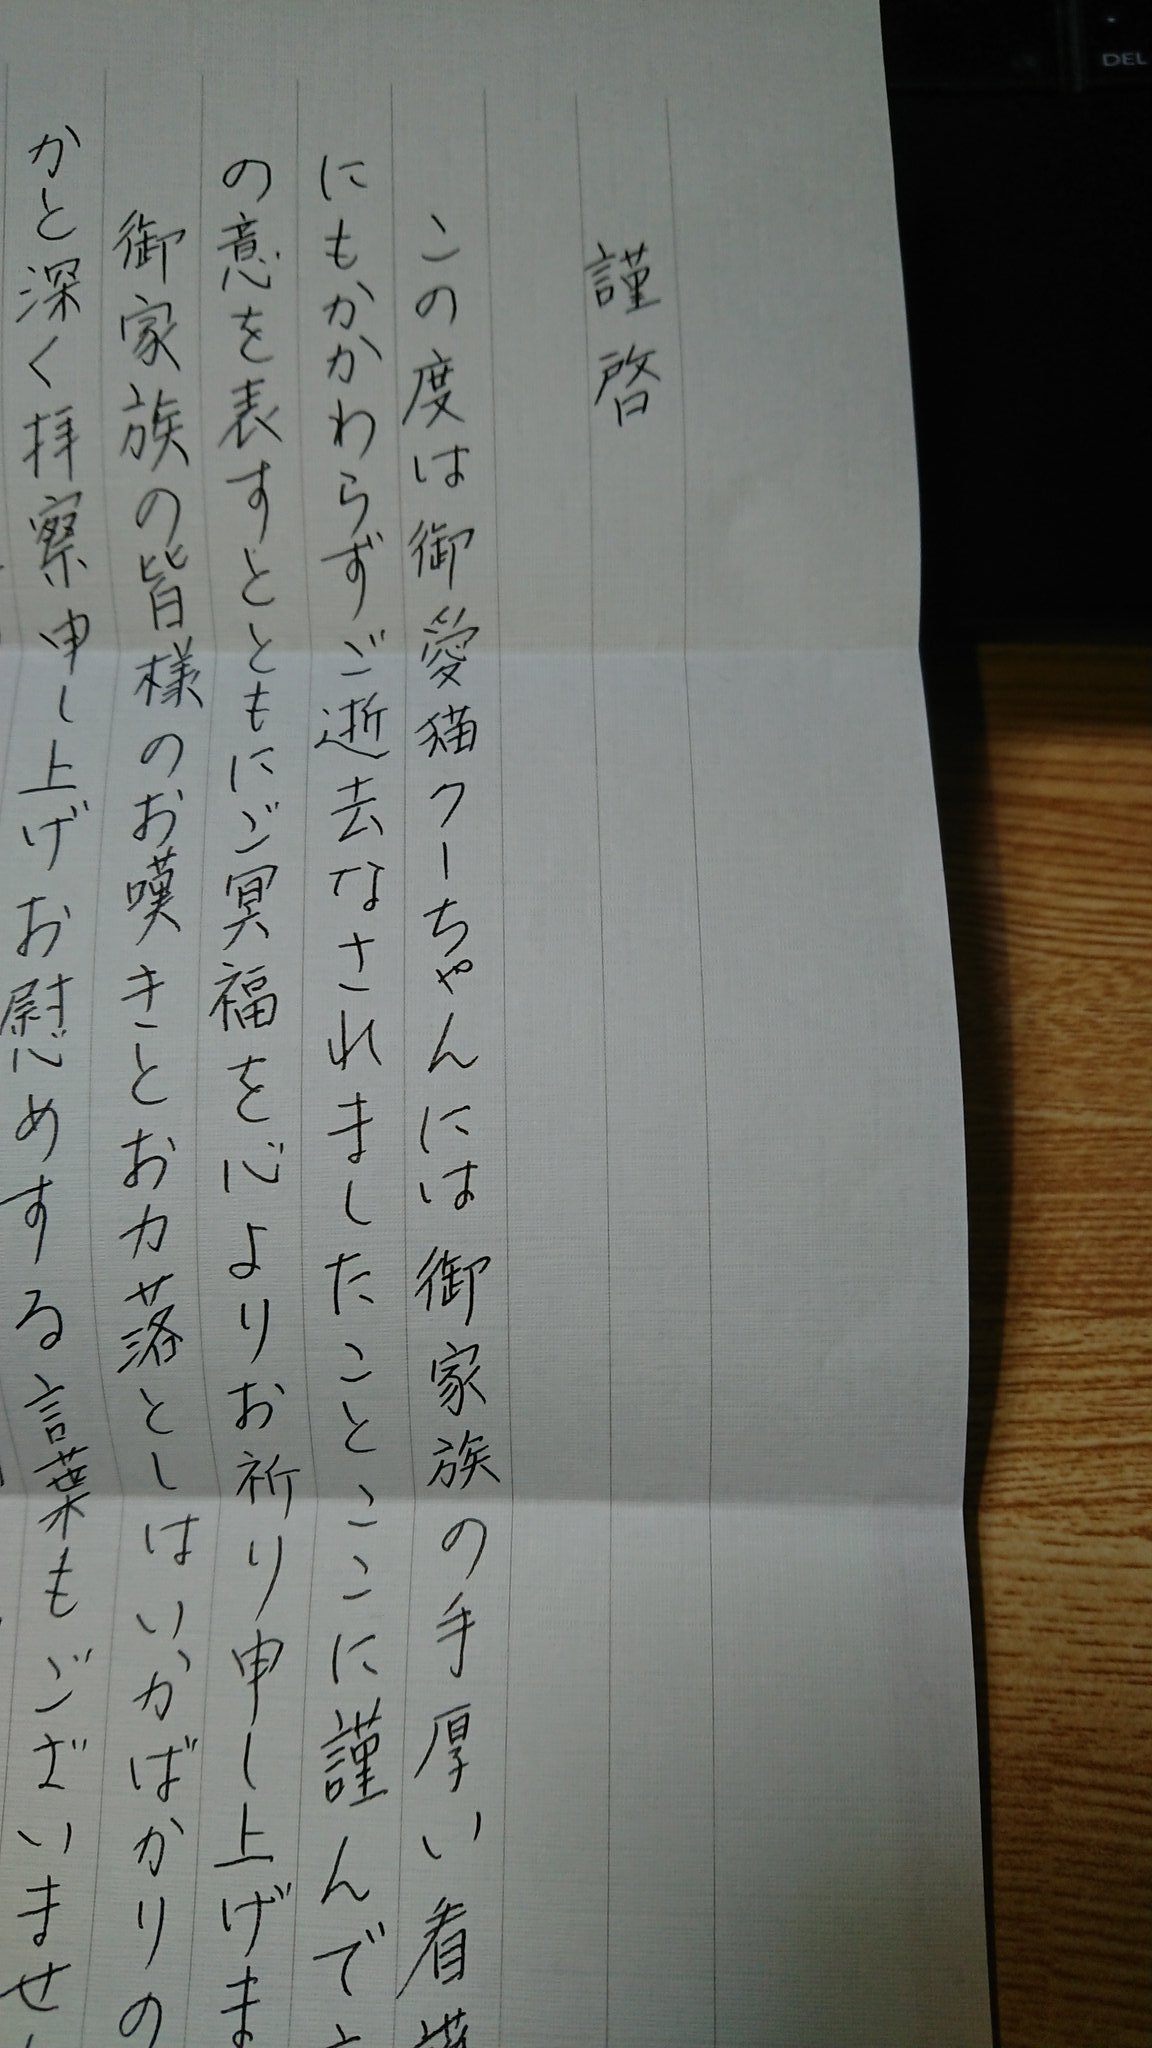 謹啓
この度は御愛猫クーちゃんには御家族の手厚い看護
にもかかわらずご逝去なされましたことここに謹んで
の意を表すとともにご冥福を心よりお祈り申し上げま
御家族の皆様のお嘆きとお力落としはいかばかりの
かと深く拝察申し上げお慰めする言葉もございませ
DEL